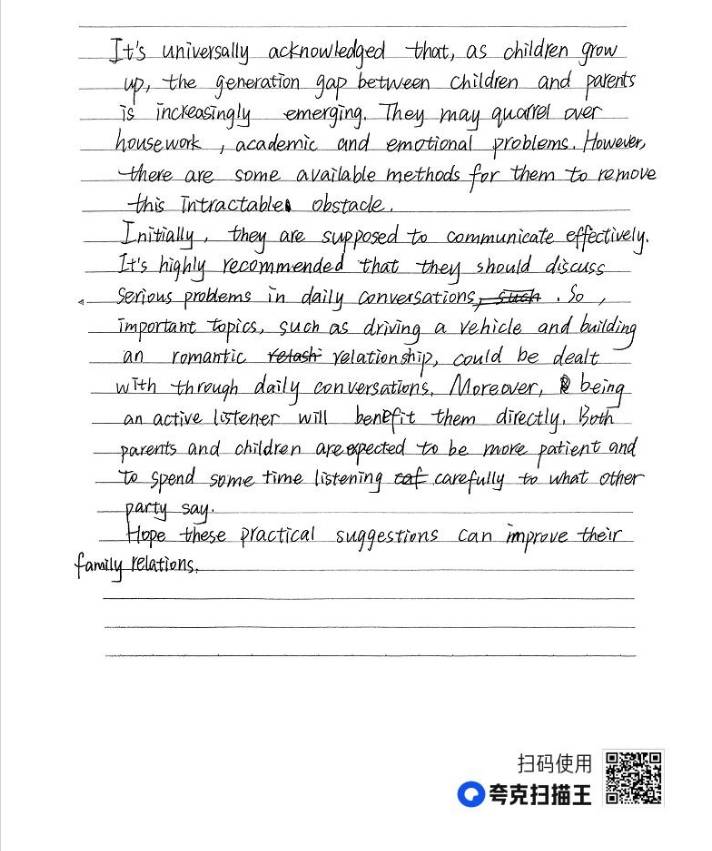 It's universally acknowledged that, as children grow
up, the generation gap between children and parents
is increasingly emerging. They may quarrel over
housework, academic and emotional problems. However,
there are some available methods for them to remove
this intractable obstacle.
Initially, they are supposed to communicate effectively.
It's highly recommended that they should discuss
serious problems in daily conversations, such. So,
important topics, such as driving a vehicle and building
an romantic relationship, could be dealt
with through daily conversations. Moreover, being
an active listener will benefit them directly. Both
parents and children are expected to be more patient and
to spend some time listening carefully to what other
party say.
Hope these practical suggestions can improve their
family relations.
扫码使用
夸克扫描王